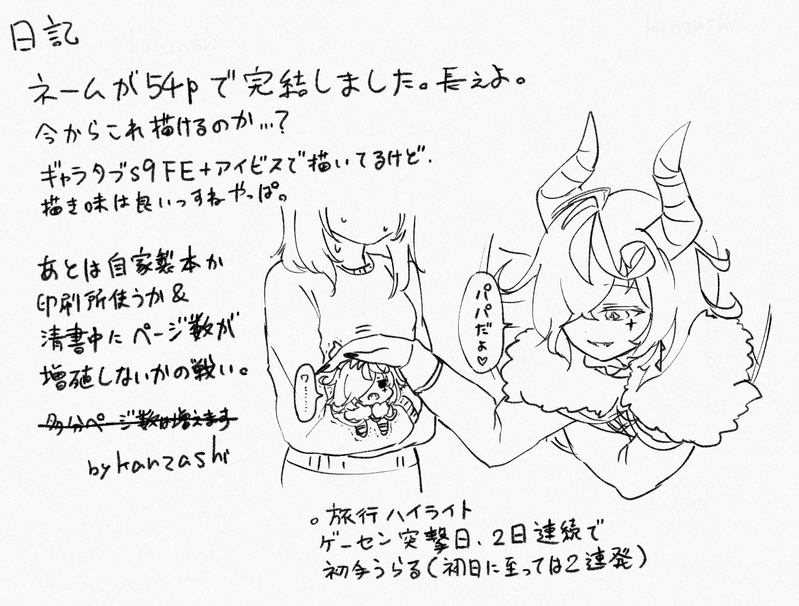 日記
ネームが54pで完結しました。長ぇよ。
今からこれ描けるのか…?
ギャラタブS9FE+アイビスで描いてるけど、
描き味は良いっすねやっぱ。
あとは自家製本か
印刷所使うか&
清書中にページ数が
増殖しないかの戦い。
多分ページ数は増えます
by kanzashi
パパだよ♡
ワ……
。旅行ハイライト
ゲーセン突撃日、2日連続で
初手うらる(初日に至っては2連発)